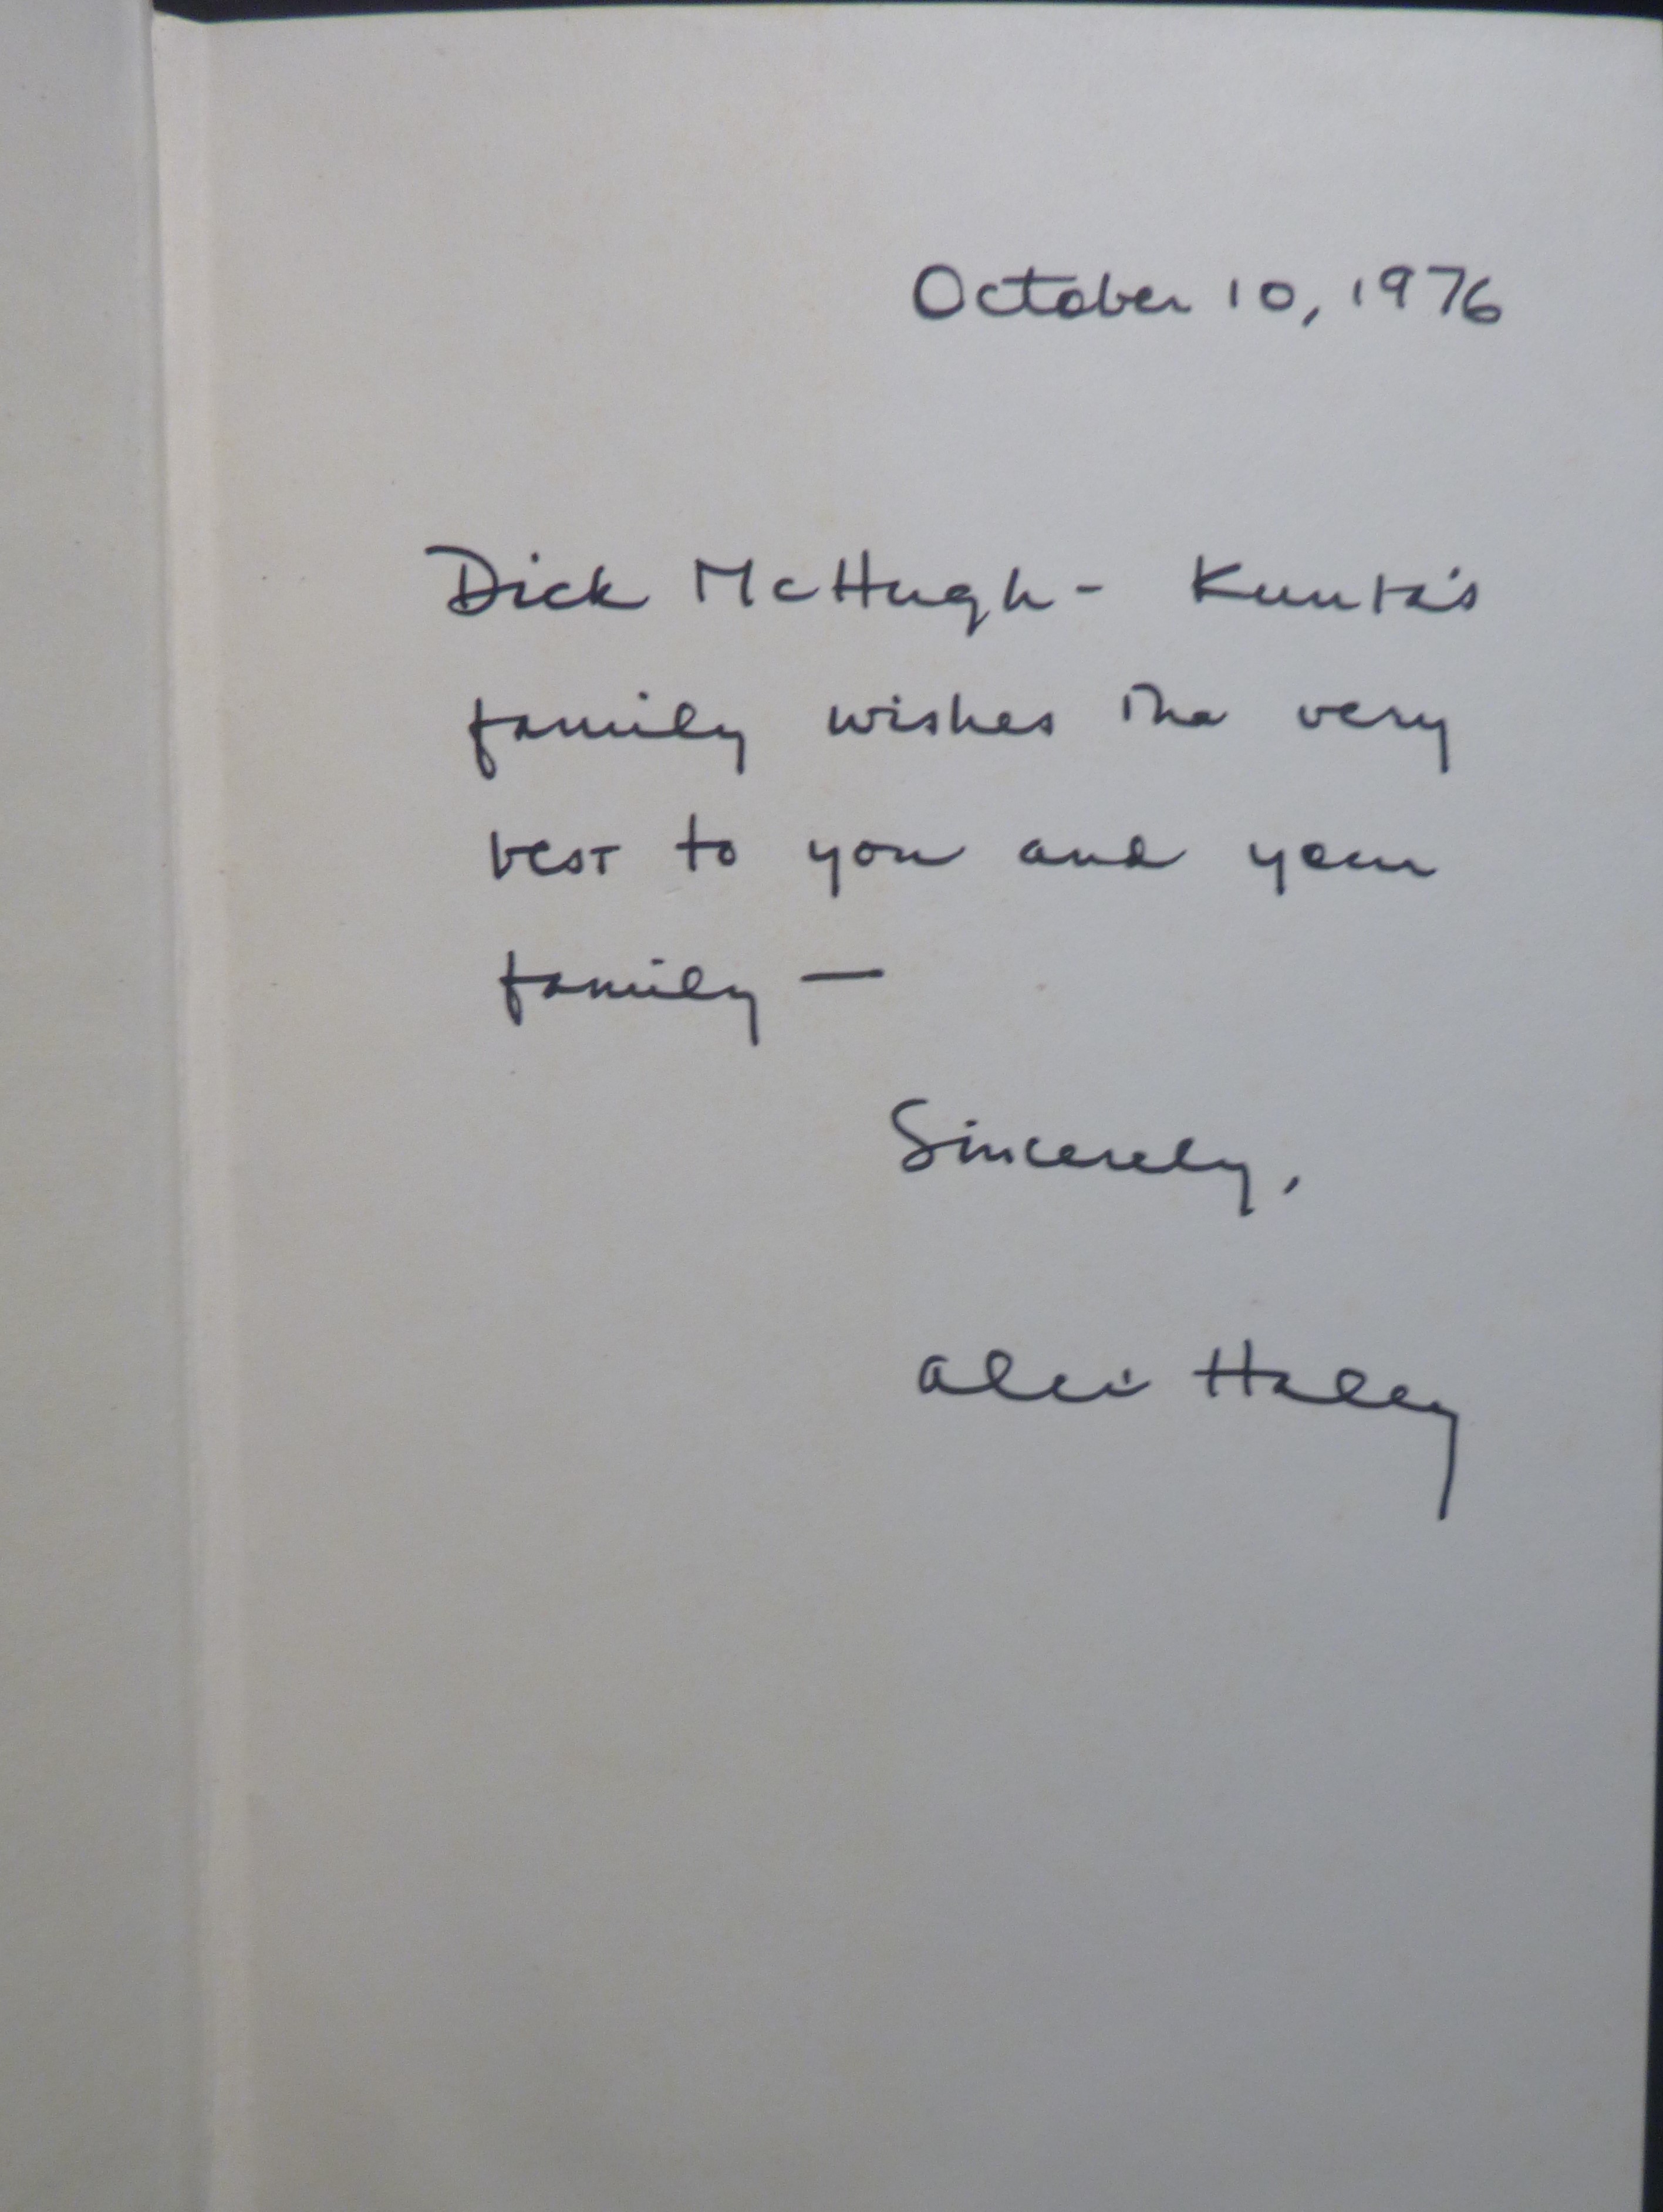 October 10, 1976
Dick McHugh - Kunta's
family wishes the very
best to you and your
family —
Sincerely,
Alex Haley